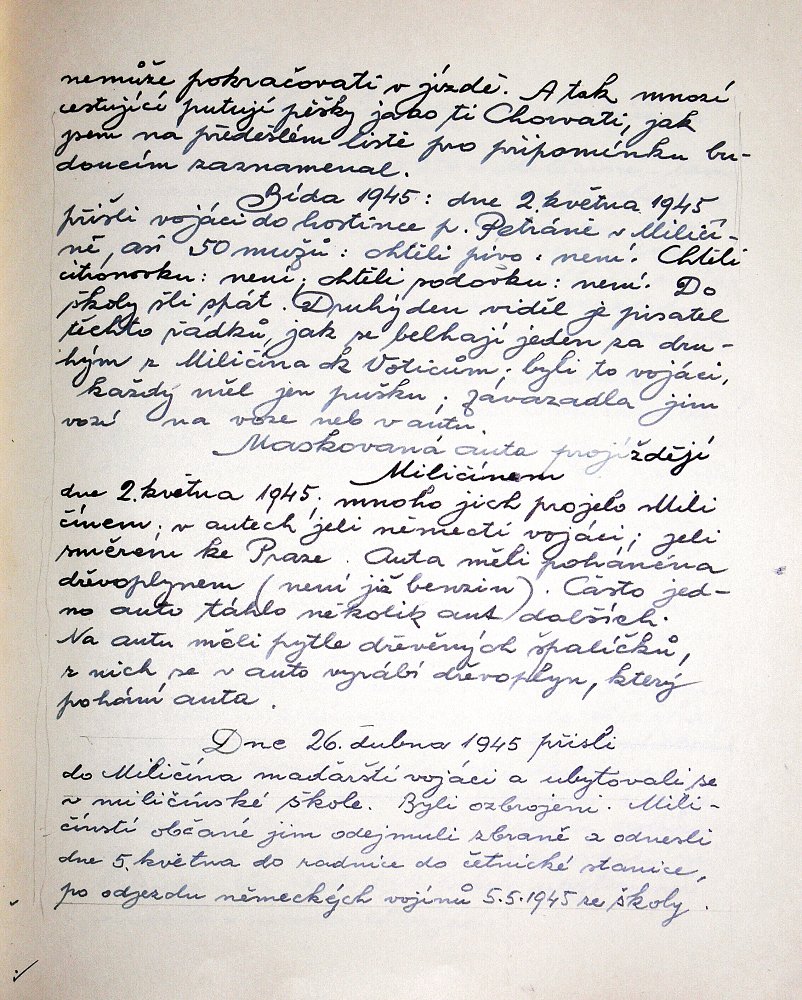 nemůže pokračovati v jízdě. A tak mnozí
cestující putují pěšky jako ti Chorvati, jak
jsem na předešlém listě pro připomínku bu-
doucím zaznamenal.
Bída 1945: dne 2. května 1945
přišli vojáci do hostince p. Petráně v Miličí-
ně, asi 50 mužů: chtěli pivo: není. Chtěli
citronovku: není; chtěli sodovku: není. Do
školy šli spát. Druhý den viděl je pisatel
těchto řádků, jak se belhají jeden za dru-
hým z Miličína k Voticům; byli to vojáci,
každý měl jen pušku; závazadla jim
vozí na voze neb v autu.
Maskovaná auta projíždějí
Miličínem
dne 2. května 1945; mnoho jich projelo Mili
čínem; v autech jeli němečtí vojáci; jeli
směrem ke Praze. Auta měli poháněna
dřevoplynem (není již benzin). Často jed-
no auto táhlo několik aut dalších.
Na autu měli pytle dřevěných špalíčků,
z nich se v auto vyrábí dřevoplyn, který
pohání auta.
Dne 26. dubna 1945 přišli
do Miličína maďarští vojáci a ubytovali se
v miličínské škole. Byli ozbrojeni. Mili-
čínstí občané jim odejmuli zbraně a odnesli
dne 5. května do radnice do četnické stanice,
po odjezdu německých vojínů 5.5.1945 ze školy.